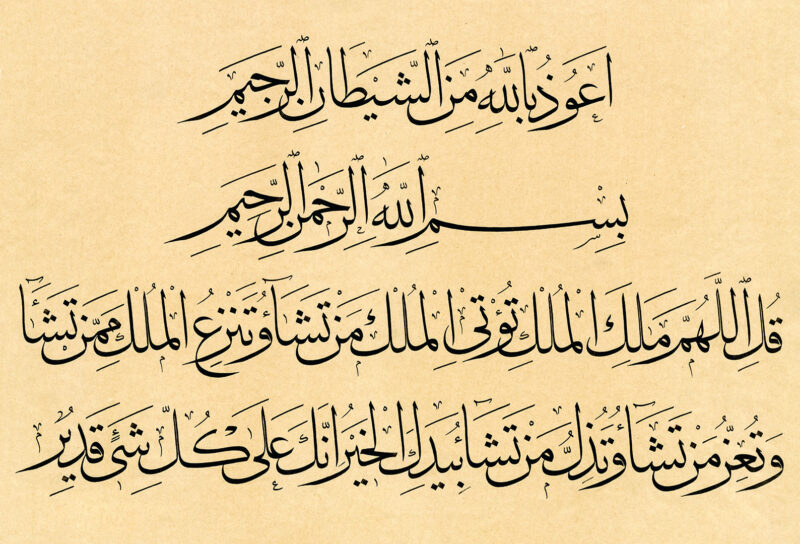 اَعُوذُ بِاللّٰهِ مِنَ الشَّيْطَانِ الرَّجِيمِ
بِسْمِ اللّٰهِ الرَّحْمٰنِ الرَّحِيمِ
قُلِ اللّٰهُمَّ مَالِكَ الْمُلْكِ تُؤْتِى الْمُلْكَ مَنْ تَشَآءُ وَتَنْزِعُ الْمُلْكَ مِمَّنْ تَشَآءُ
وَتُعِزُّ مَنْ تَشَآءُ وَتُذِلُّ مَنْ تَشَآءُ بِيَدِكَ الْخَيْرُ اِنَّكَ عَلٰى كُلِّ شَىْءٍ قَدِيرٌ